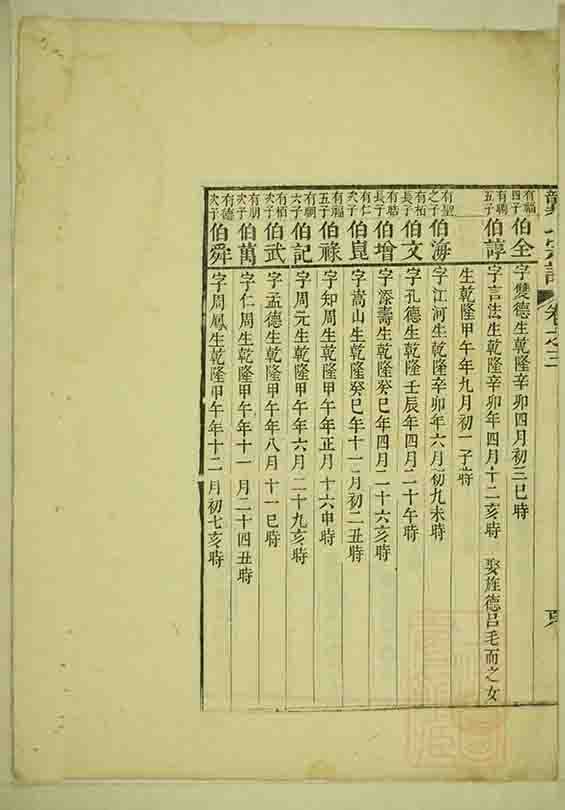 宗譜 卷之三
有福四子 伯全 字雙德生乾隆辛卯四月初三巳時
有聘五子 伯諄 字言法生乾隆辛卯年四月十二亥時 娶旌德呂毛而之女
生乾隆甲午年九月初一子時
有聖之子 伯海 字江河生乾隆辛卯年六月初九未時
有柏長子 伯文 字孔德生乾隆壬辰年四月二十午時
長子 伯增 字添壽生乾隆癸巳年四月二十六亥時
有仁次子 伯崑 字嵩山生乾隆癸巳年十一月初二丑時
有福五子 伯祿 字知周生乾隆甲午年正月十六申時
有朝六子 伯記 字周元生乾隆甲午年六月二十九亥時
有柏次子 伯武 字孟德生乾隆甲午年八月十一巳時
有朋次子 伯萬 字仁周生乾隆甲午年十一月二十四丑時
有德次子 伯舜 字周鳳生乾隆甲午年十二月初七亥時